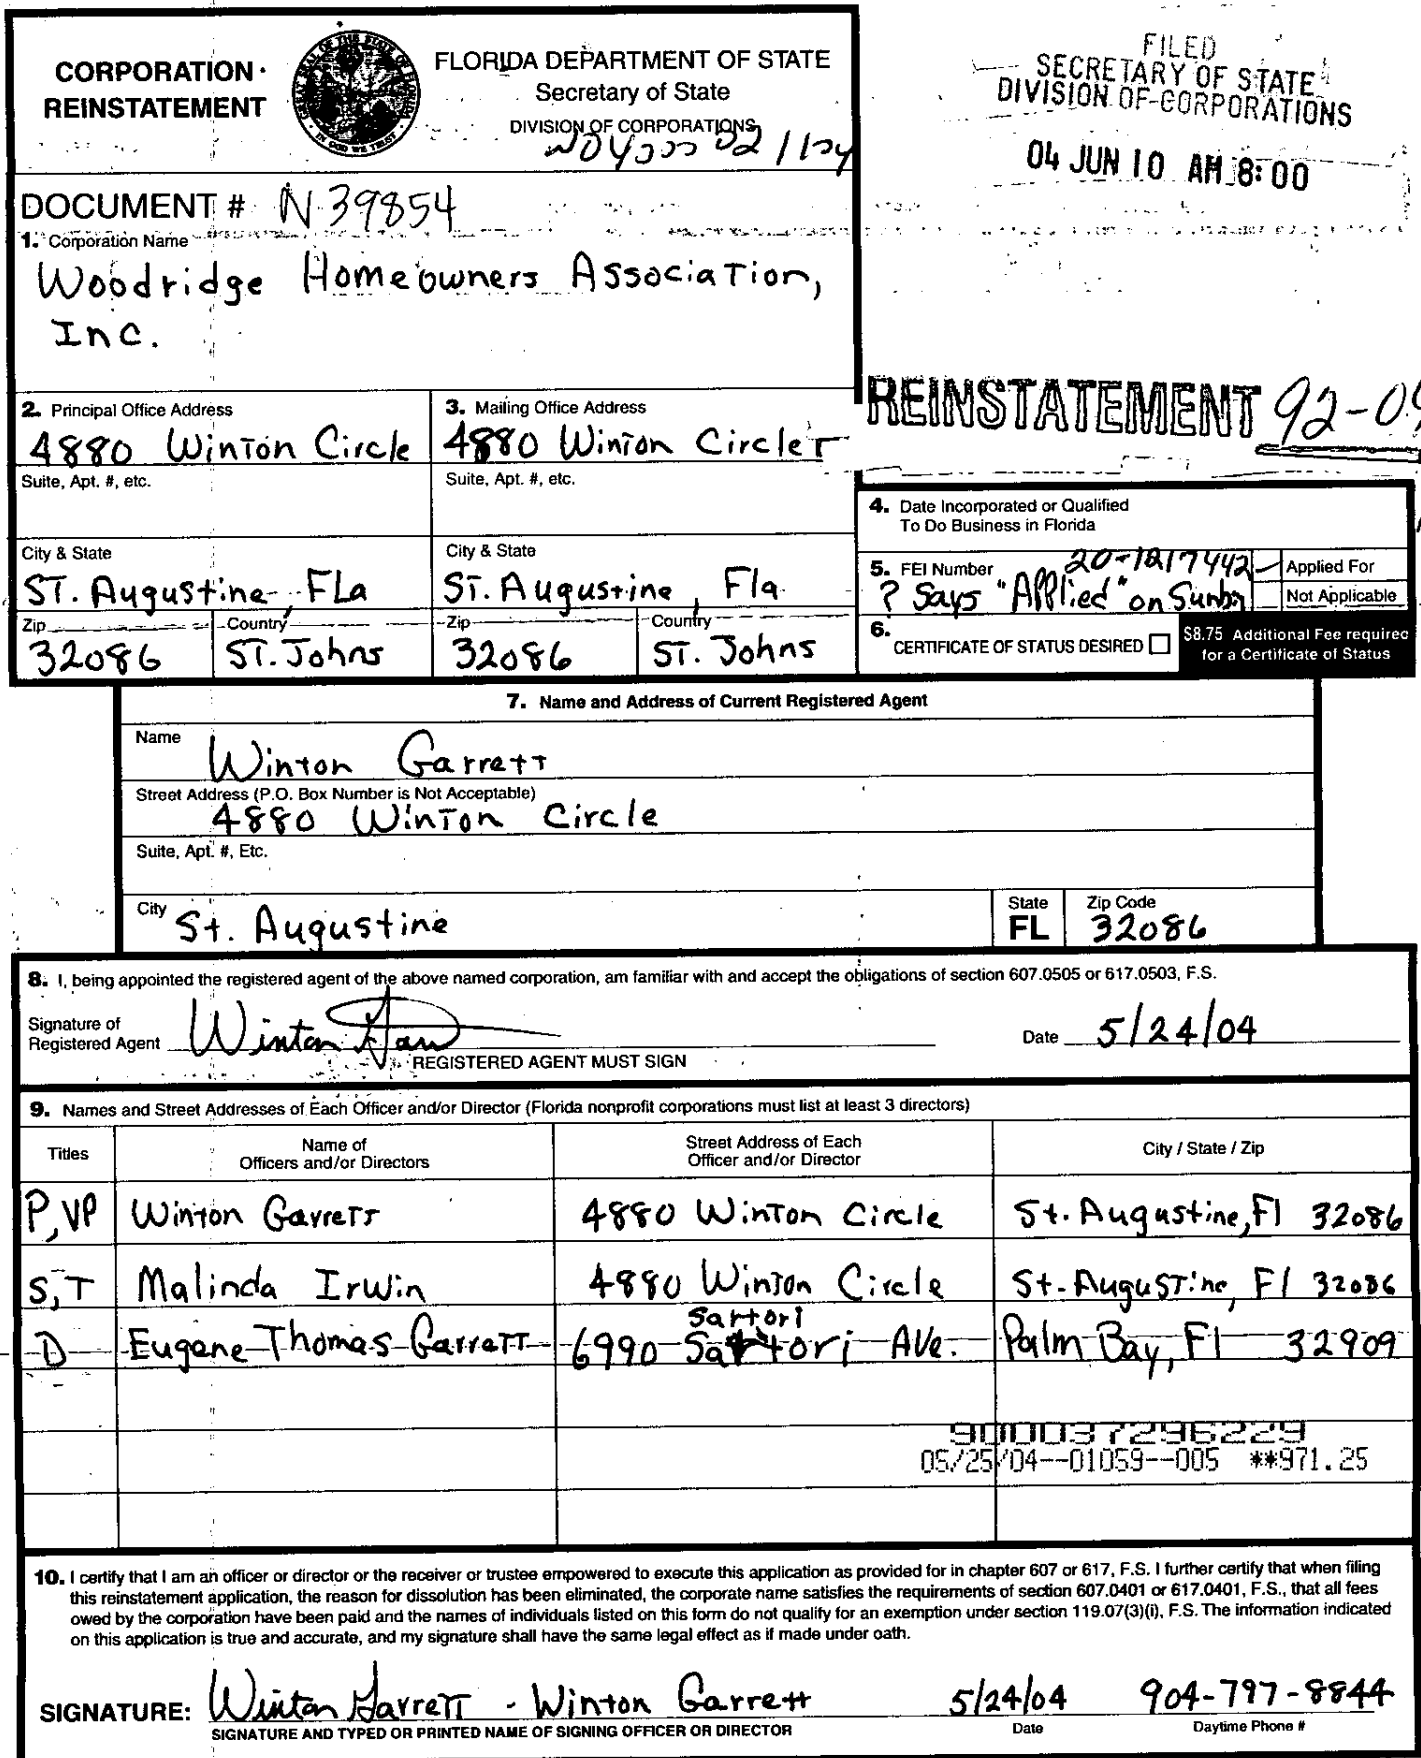 CORPORATION
REINSTATEMENT
FLORIDA DEPARTMENT OF STATE
Secretary of State
DIVISION OF CORPORATIONS
FILED
SECRETARY OF STATE
DIVISION OF CORPORATIONS
04 JUN 10 AM 8:00
DOCUMENT # N39854
1. Corporation Name
Woodridge Homeowners Association,
Inc.
REINSTATEMENT
2. Principal Office Address
4880 Winton Circle
3. Mailing Office Address
4880 Winton Circle
Suite, Apt. #, etc.
Suite, Apt. #, etc.
City & State
ST. Augustine, FLa
City & State
ST. Augustine, Fla.
Zip
32086
Country
ST. Johns
Zip
32086
Country
ST. Johns
4. Date Incorporated or Qualified
To Do Business in Florida
5. FEI Number
20-1217442
? Says "Applied" on Sunbiz
Applied For
Not Applicable
6. CERTIFICATE OF STATUS DESIRED
$8.75 Additional Fee required
for a Certificate of Status
7. Name and Address of Current Registered Agent
Name
Winton Garrett
Street Address (P.O. Box Number is Not Acceptable)
4880 Winton Circle
Suite, Apt. #, Etc.
City St. Augustine
State
FL
Zip Code
32086
8. I, being appointed the registered agent of the above named corporation, am familiar with and accept the obligations of section 607.0505 or 617.0503, F.S.
Signature of
Registered Agent
Winton
Date 5/24/04
REGISTERED AGENT MUST SIGN
9. Names and Street Addresses of Each Officer and/or Director (Florida nonprofit corporations must list at least 3 directors)
Titles
Name of
Officers and/or Directors
Street Address of Each
Officer and/or Director
City / State / Zip
P, VP Winton Garrett 4880 Winton Circle St. Augustine, Fl 32086
S, T Malinda Irwin 4880 Winton Circle St. Augustine, Fl 32086
Sartori
D Eugene Thomas Garrett 6990 Sartori Ave. Palm Bay, Fl 32909
900037296229
05/25/04--01059--005 **971.25
10. I certify that I am an officer or director or the receiver or trustee empowered to execute this application as provided for in chapter 607 or 617, F.S. I further certify that when filing
this reinstatement application, the reason for dissolution has been eliminated, the corporate name satisfies the requirements of section 607.0401 or 617.0401, F.S., that all fees
owed by the corporation have been paid and the names of individuals listed on this form do not qualify for an exemption under section 119.07(3)(i), F.S. The information indicated
on this application is true and accurate, and my signature shall have the same legal effect as if made under oath.
SIGNATURE: Winton Garrett - Winton Garrett 5/24/04 904-797-8844
SIGNATURE AND TYPED OR PRINTED NAME OF SIGNING OFFICER OR DIRECTOR
Date
Daytime Phone #